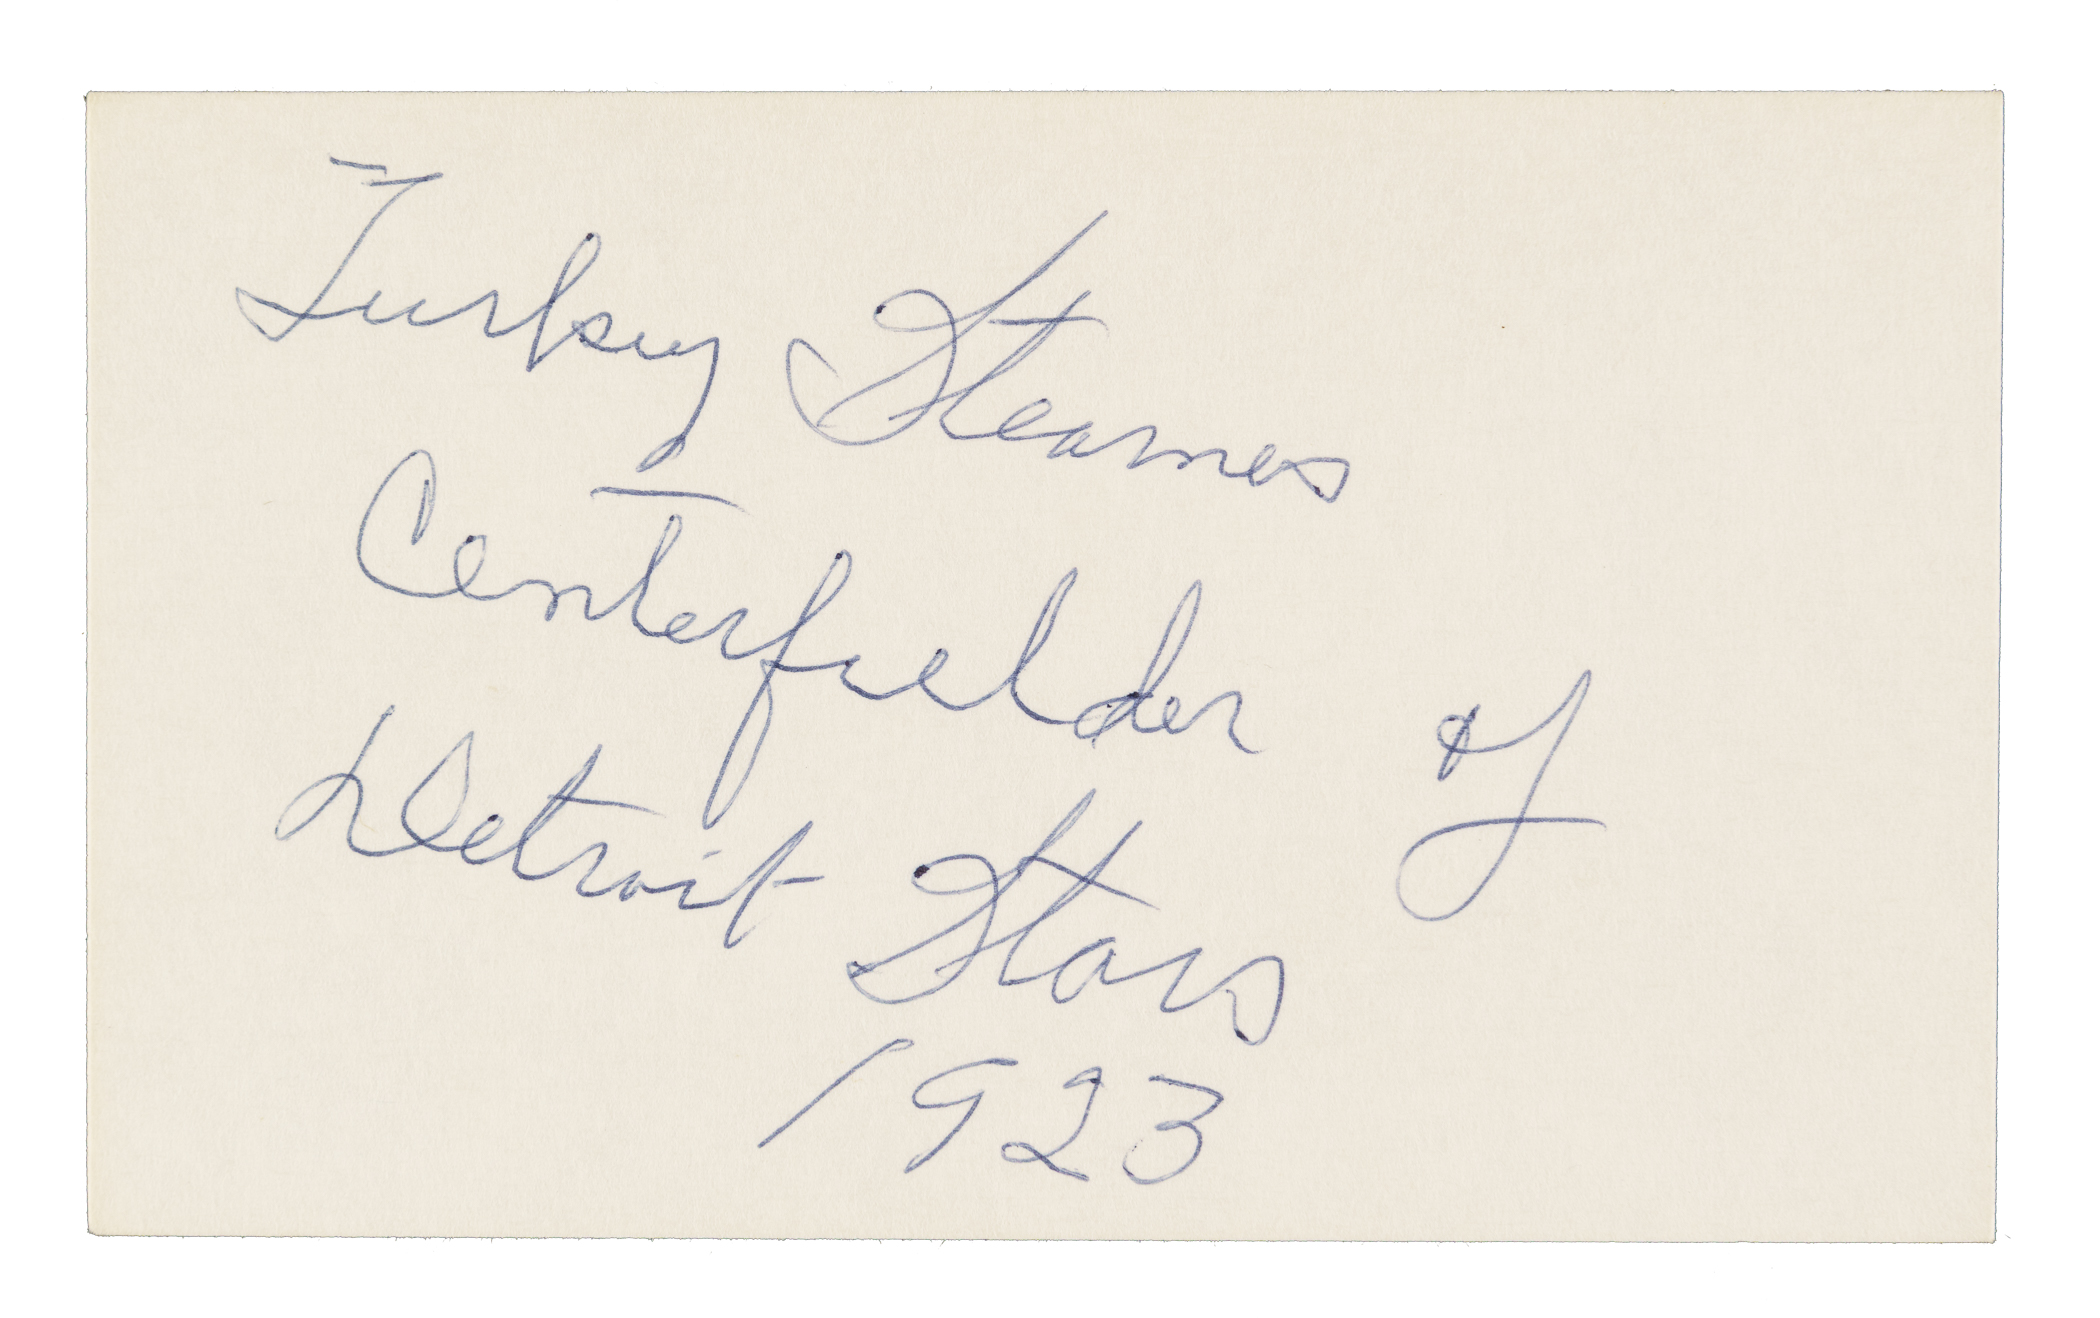 Turkey Stearnes
Centerfielder of
Detroit Stars
1923